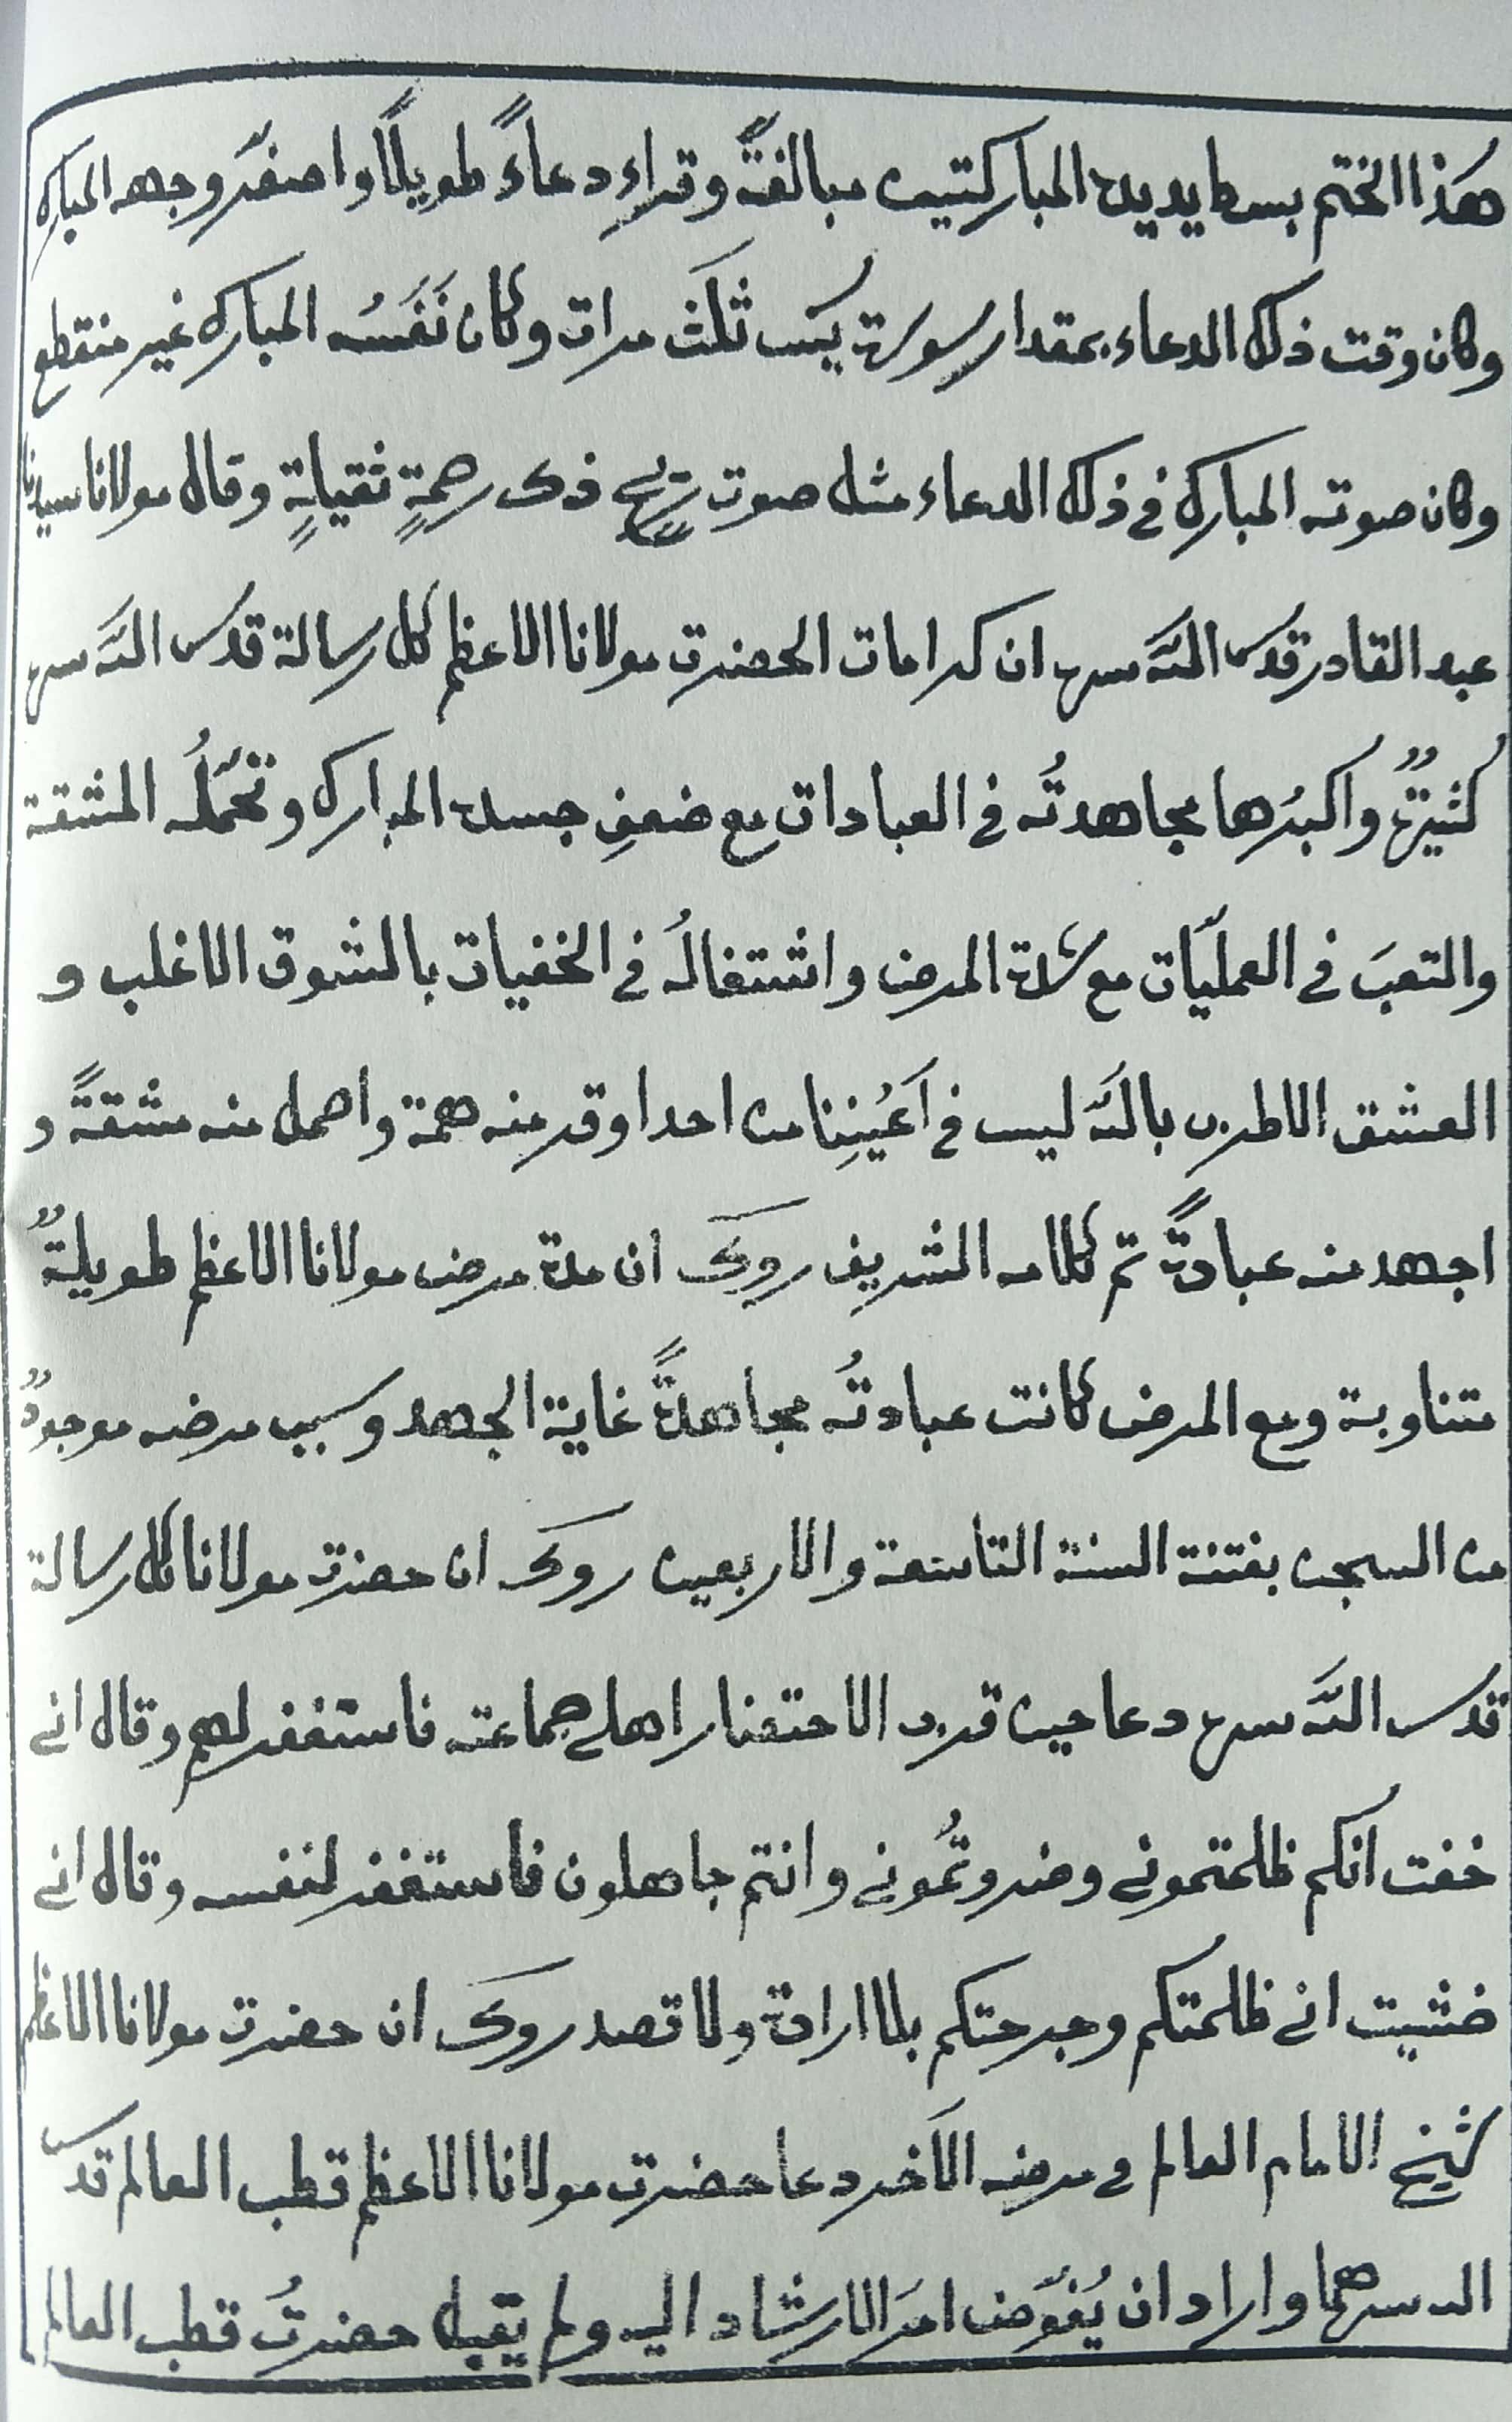 هذا الختم بسط يديه المباركتين مبالغةً وقراءِ دعاءً طويلًا واصفرّ وجهه المبارك
وكان وقت ذلك الدعاء بمقدار سورة يٓس ثلٰث مرات وكان نَفَسُه المبارك غير منقطع
وكان صوته المبارك في ذلك الدعاء مثل صوت ذى رحمةٍ ثقيلةٍ وقال مولانا سيدنا
عبد القادر قدس اللّٰه سره ان كرامات الحضرت مولانا الاعظم كل رسالة قدس اللّٰه سره
كثيرةٌ واكبرُها مجاهدتُه في العبادات مع ضعفِ جسده المبارك وتحمّلُه المشقة
والتعبَ في العمليّات مع شدة المرض واشتغالُه في الخفيات بالشوق الاغلب و
العشق الاطرب باللّٰه ليس في اَعيُنِنا من احد اوقد منه همة واحمل منه مشقةً و
اجهد منه عبادةً تم كلامه الشريف روى ان مدة مرض مولانا الاعظم طويلةٌ
متناوبة ومع المرض كانت عبادتُه مجاهدةً غاية الجهد وسبب مرضه موجودٌ
من السجن بفتنة السنة التاسعة والاربعين روى ان حضرت مولانا كل رسالة
قدس اللّٰه سره دعا حين قرب الاحتضار اهل جماعته فاستغفر لهم وقال انى
خفت انكم ظلمتمونى وضررتُمونى وانتم جاهلون فاستغفر لنفسه وقال انى
خشيت انى ظلمتكم وجرحتكم بلا ارادة ولا قصد روى ان حضرت مولانا الاعظم
شيخ الامام العالم فى مرضه الآخر دعا حضرت مولانا الاعظم قطب العالم قدس
اللہ سرهما واراد ان يُفوّض امرَ الارشاد اليه ولم يقبله حضرتُ قطب العالم